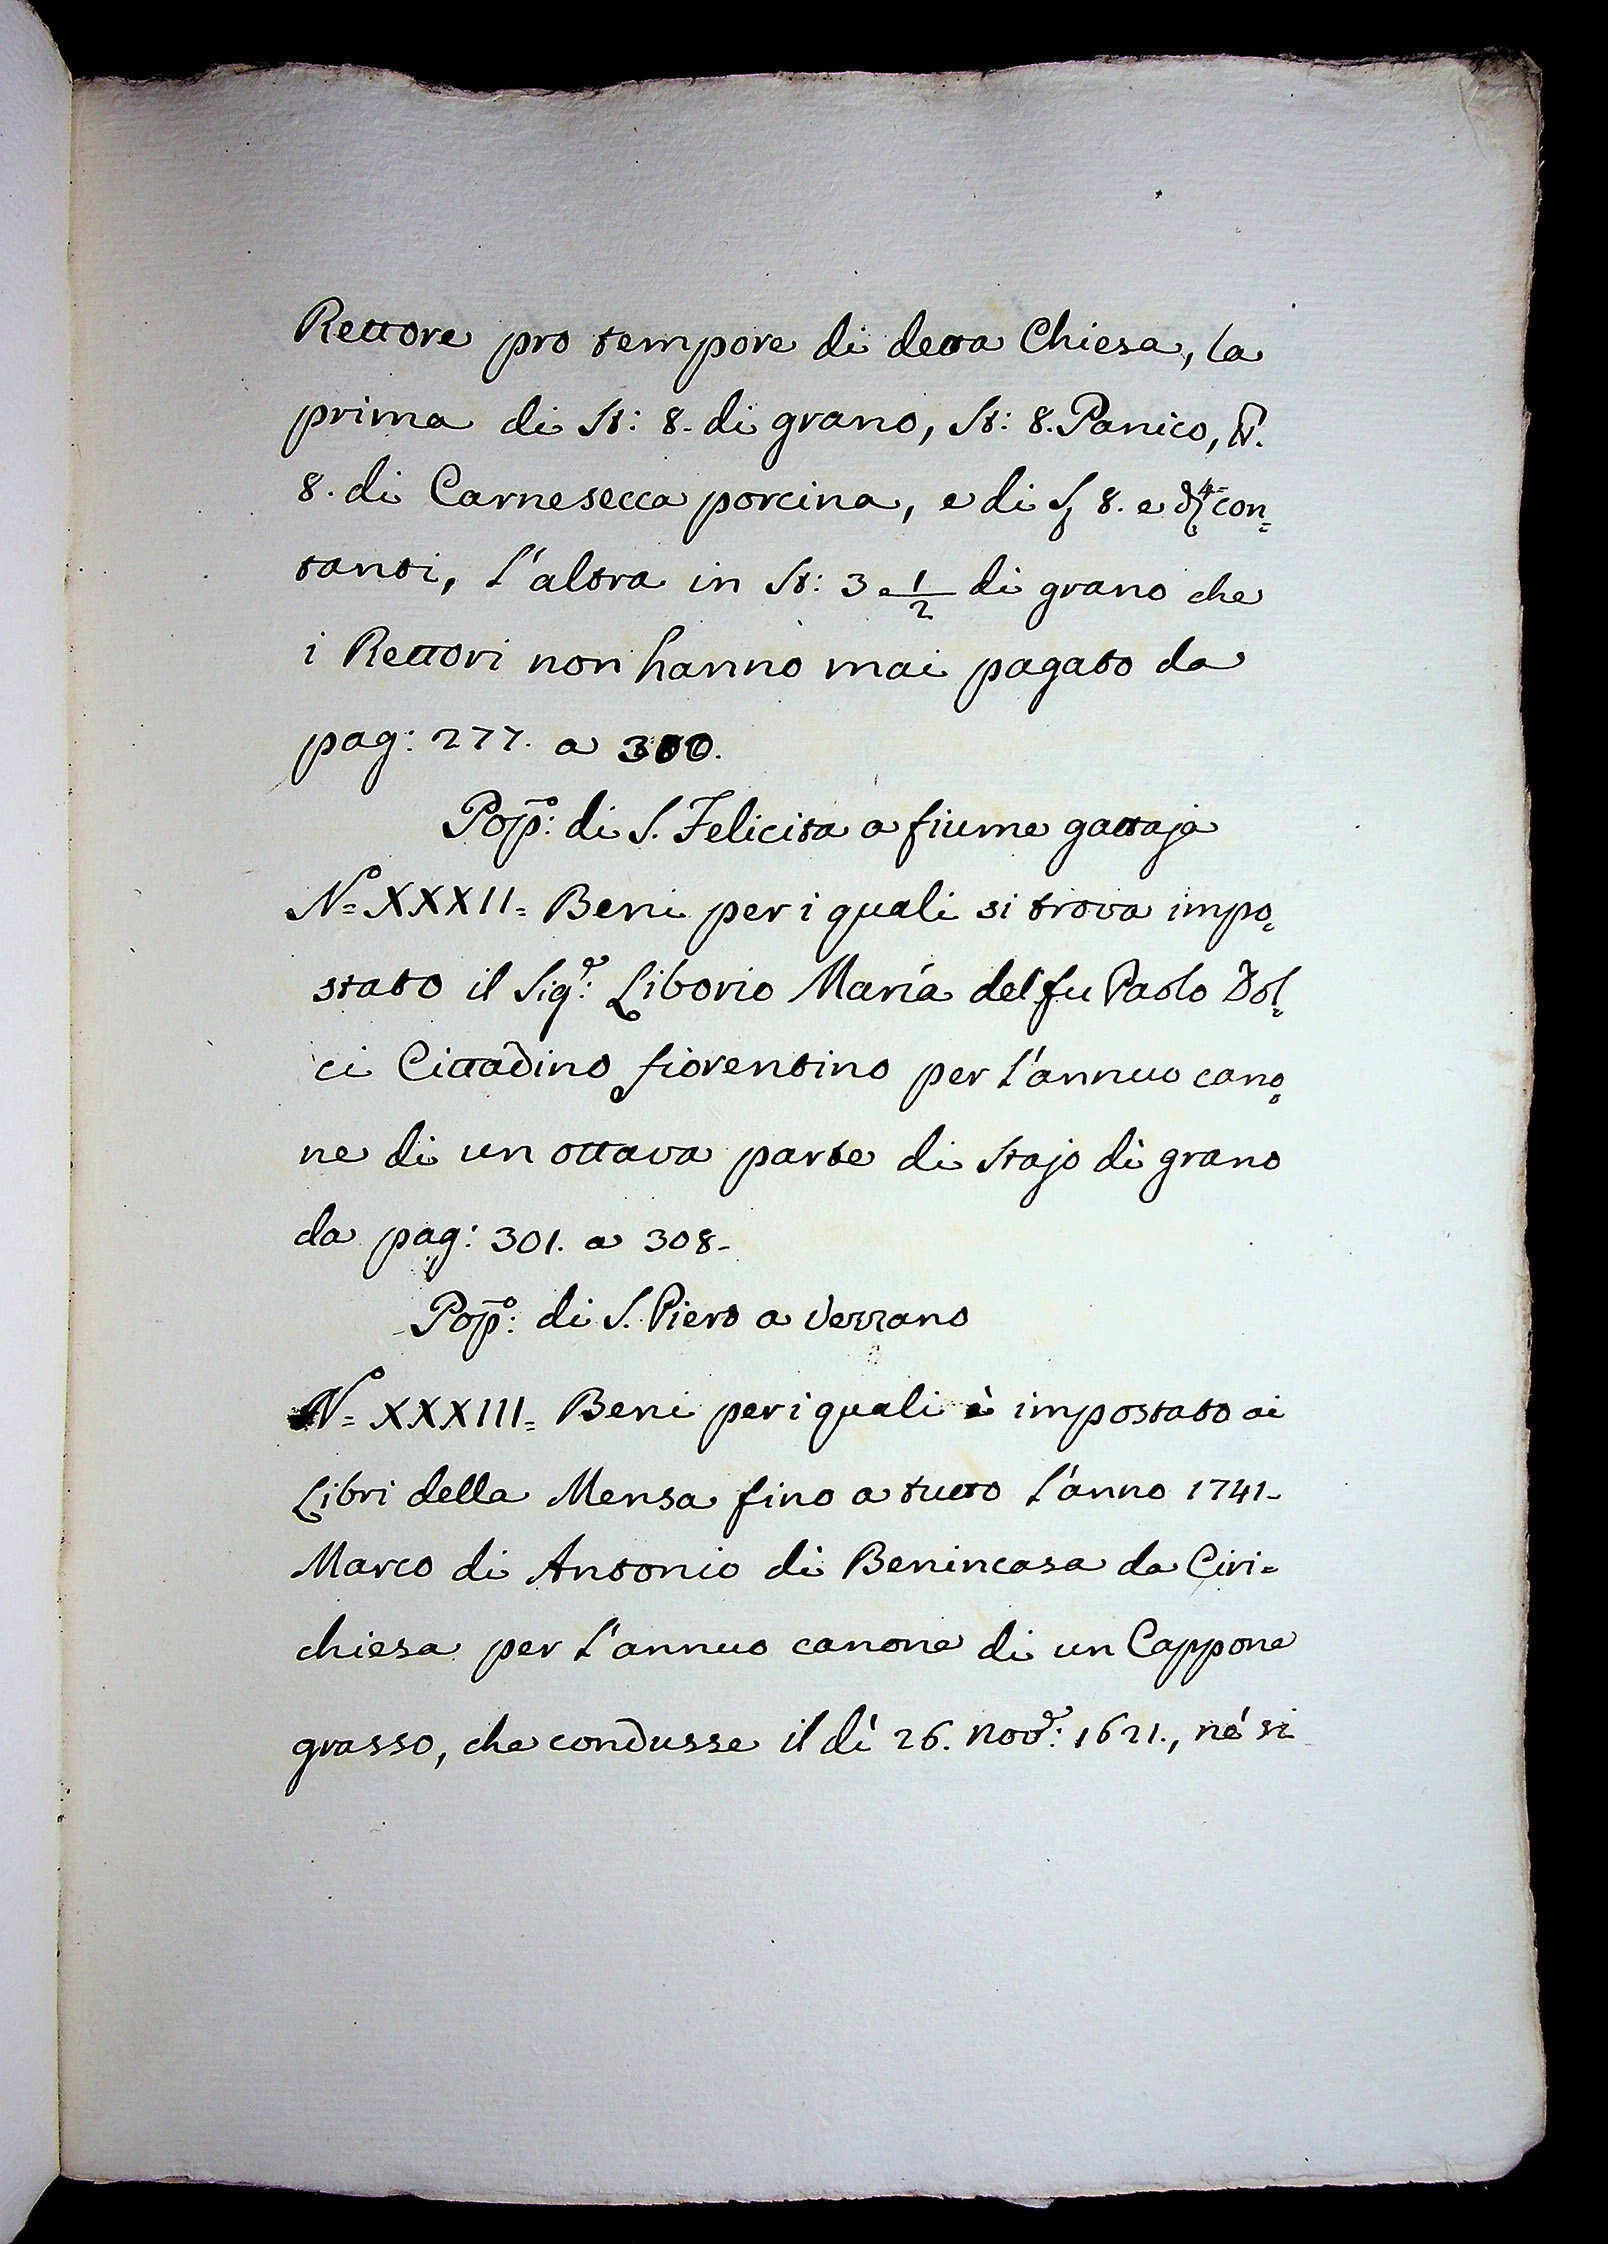 Rettore pro tempore di detta Chiesa, la
prima di St: 8. di grano, St: 8. Panico,
8. di Carnesecca porcina, e di 8. e con=
tanti, l'altra in St: 3 1/2 di grano che
i Rettori non hanno mai pagato da
pag: 277. a 300.
Popo: di S. Felicita a fiume gattaja
No= XXXII= Beni per i quali si trova impo=
stato il Sigr: Liborio Maria del fu Paolo Dol=
ci Cittadino fiorentino per l'annuo cano=
ne di un ottava parte di Stajo di grano
da pag: 301. a 308-
Popo: di S. Piero a Verzano
No= XXXIII= Beni per i quali è impostato ai
Libri della Mensa fino a tutto l'anno 1741-
Marco di Antonio di Benincasa da Ciri=
chiesa per l'annuo canone di un Cappone
grasso, che condusse il dì 26. Novr: 1621., né si